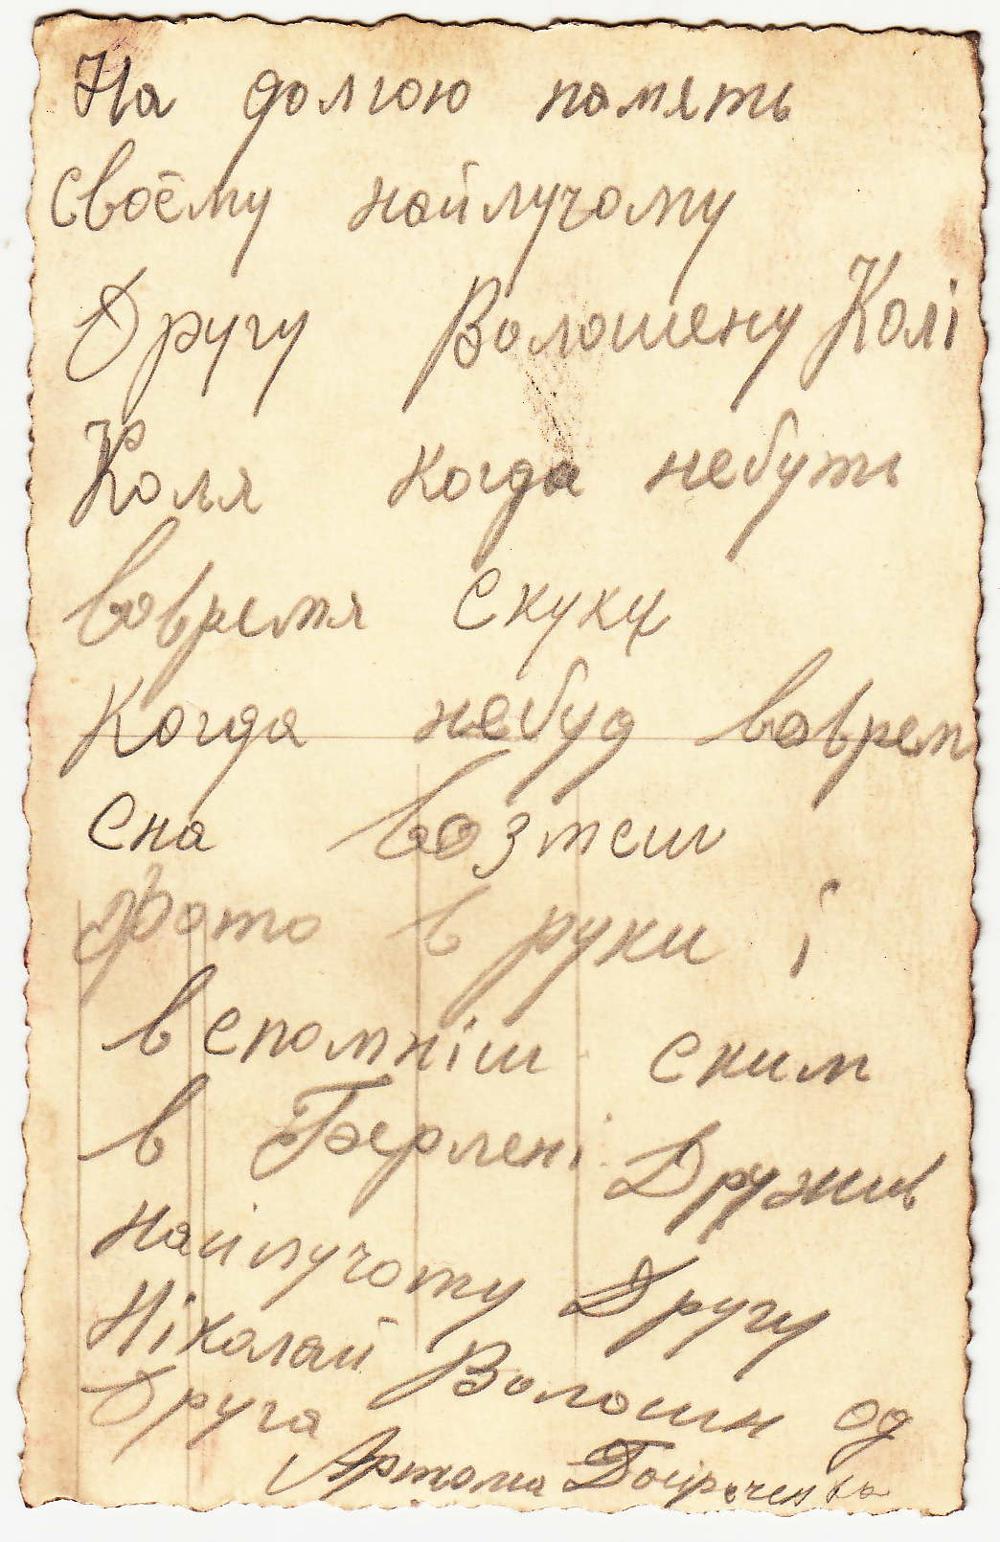 На долгою память
своёму найлучому
Другу Волошену Колі
Коля когда небуть
вовремя скуки
Когда небуд воврем
сна возмеш
фото в руки і
вспомніш ским
в Берлені Дружив
найлучому Другу
Ніколай Волошин од
Друга
Артома